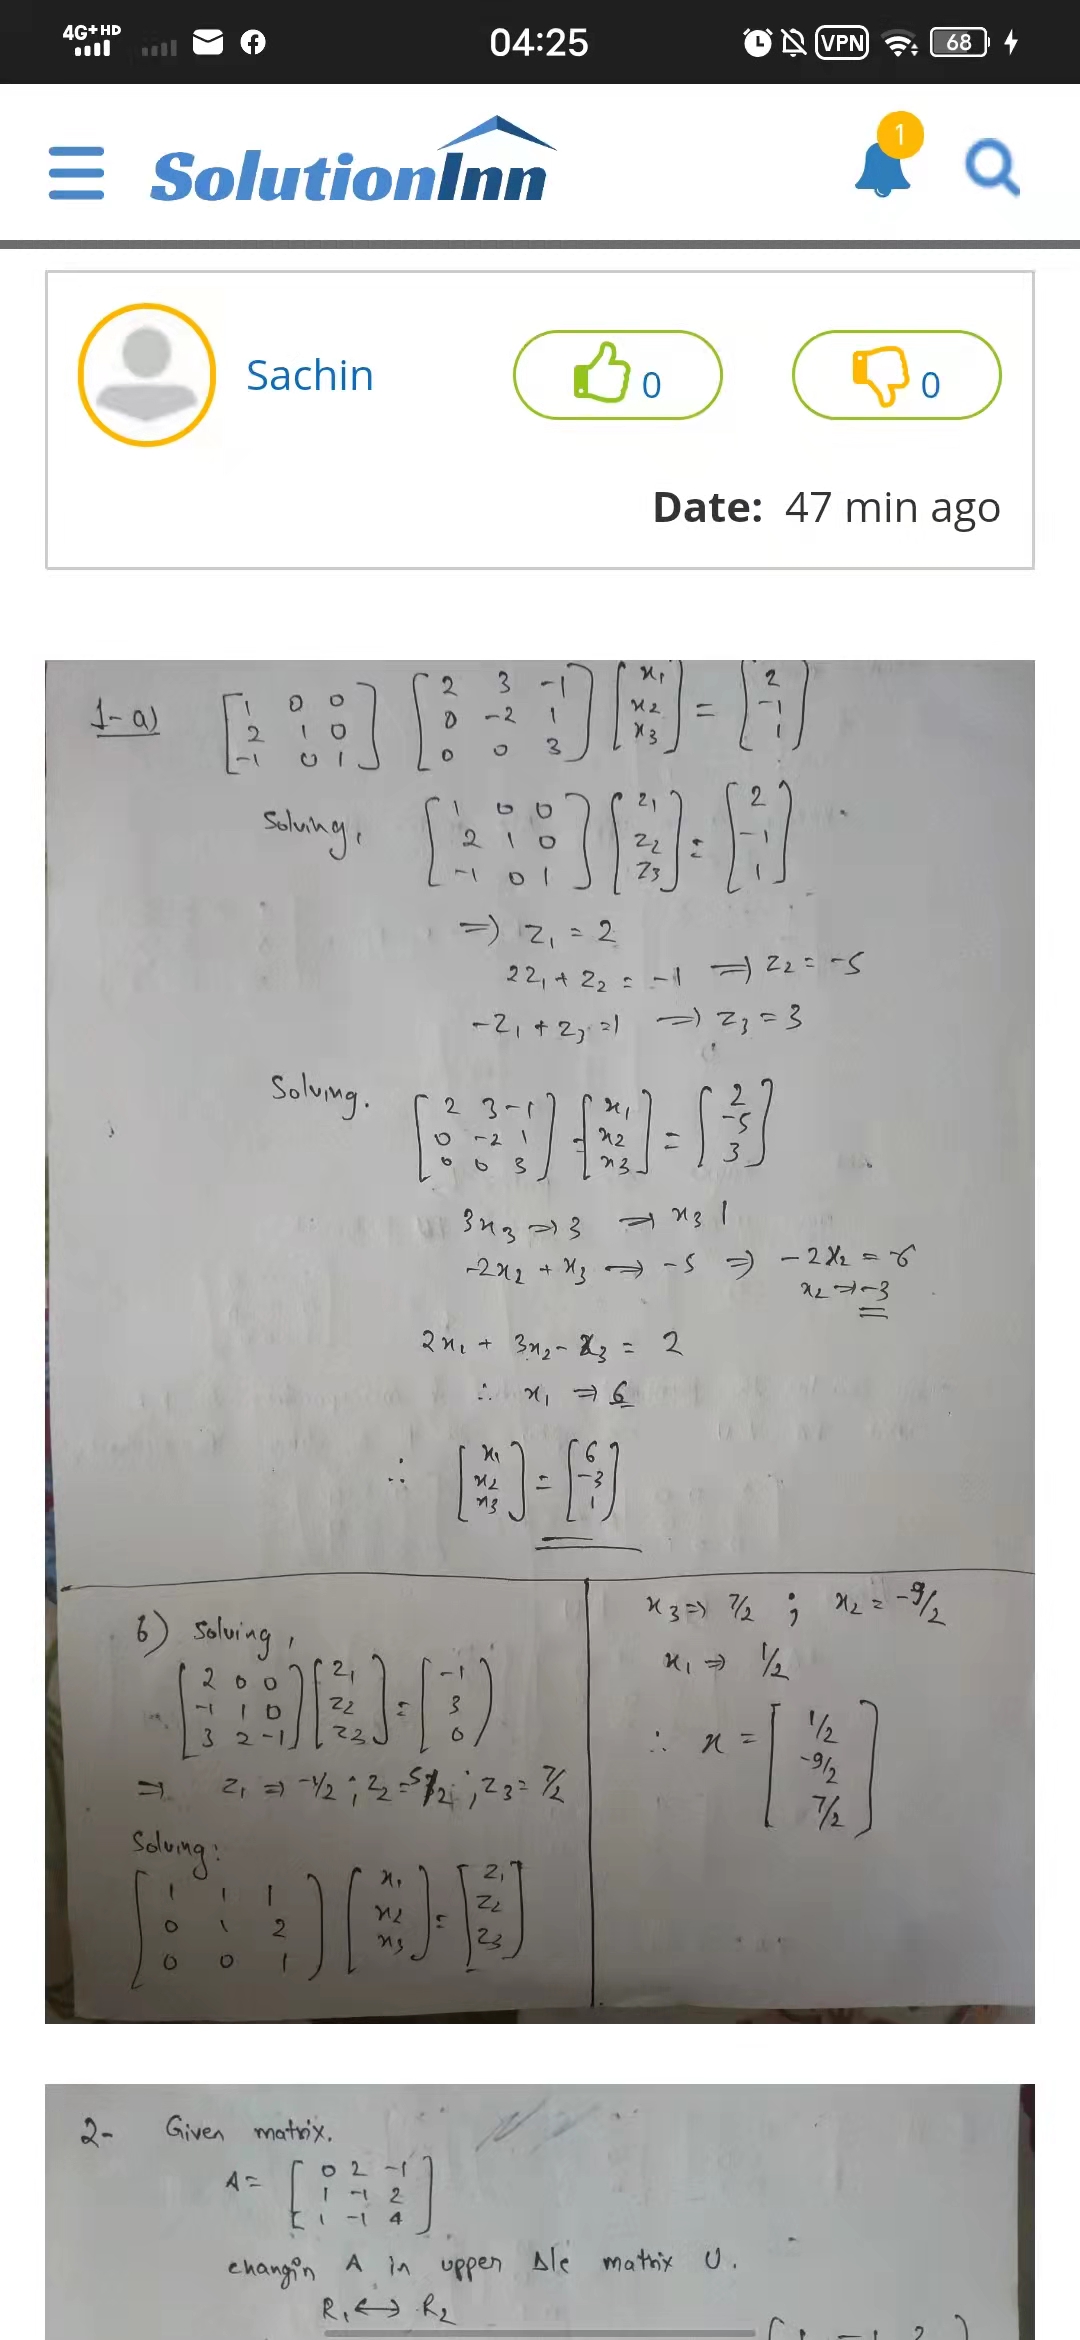 4G+HD 04:25 VPN 68
SolutionInn 1
Sachin 0 0
Date: 47 min ago
1-a) [1 0 0; 2 1 0; -1 0 1] [2 3 -1; 0 -2 1; 0 0 3] [x1; x2; x3] = [2; -1; 1]
Solving, [1 0 0; 2 1 0; -1 0 1] [z1; z2; z3] = [2; -1; 1]
=> z1 = 2
2z1 + z2 = -1 => z2 = -5
-z1 + z3 = 1 => z3 = 3
Solving. [2 3 -1; 0 -2 1; 0 0 3] [x1; x2; x3] = [2; -5; 3]
3x3 => 3 => x3 1
-2x2 + x3 => -5 => -2x2 = -6
x2 => -3
2x1 + 3x2 - x3 = 2
∴ x1 => 6
∴ [x1; x2; x3] = [6; -3; 1]
b) Solving,
[2 0 0; -1 1 0; 3 2 -1] [z1; z2; z3] = [-1; 3; 0]
=> z1 => -1/2 ; z2 = 5/2 ; z3 = 7/2
Solving:
[1 1 1; 0 1 2; 0 0 1] [x1; x2; x3] = [z1; z2; z3]
x3 => 7/2 ; x2 = -9/2
x1 => 1/2
∴ x = [1/2; -9/2; 7/2]
2- Given matrix.
A = [0 2 -1; 1 -1 2; 1 -1 4]
changin A in upper Δle matrix U.
R1 <-> R2